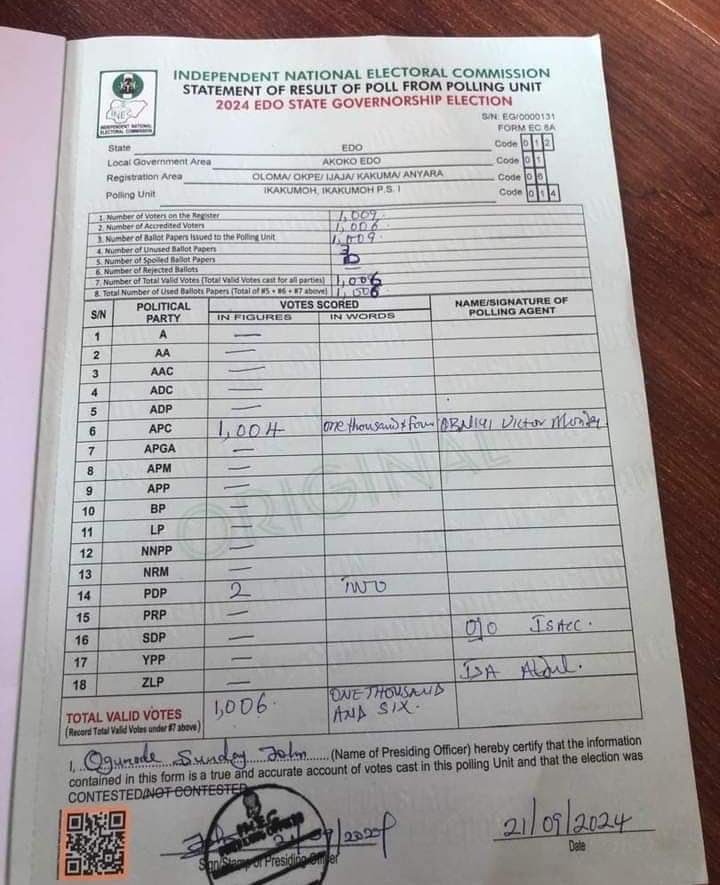 INDEPENDENT NATIONAL ELECTORAL COMMISSION
STATEMENT OF RESULT OF POLL FROM POLLING UNIT
2024 EDO STATE GOVERNORSHIP ELECTION
INEC
INDEPENDENT NATIONAL
ELECTORAL COMMISSION
S/N: EG/0000131
FORM EC 8A
State EDO Code 0 1 2
Local Government Area AKOKO EDO Code 0 1
Registration Area OLOMA/ OKPE/ IJAJA/ KAKUMA/ ANYARA Code 0 6
Polling Unit IKAKUMOH, IKAKUMOH P.S. I Code 0 1 4
1. Number of Voters on the Register 1,009
2. Number of Accredited Voters 1,006
3. Number of Ballot Papers Issued to the Polling Unit 1,009
4. Number of Unused Ballot Papers 3
5. Number of Spoiled Ballot Papers
6. Number of Rejected Ballots —
7. Number of Total Valid Votes (Total Valid Votes cast for all parties) 1,006
8. Total Number of Used Ballots Papers (Total of #5 + #6 + #7 above) 1,006
S/N POLITICAL PARTY VOTES SCORED NAME/SIGNATURE OF POLLING AGENT
IN FIGURES IN WORDS
1 A —
2 AA —
3 AAC —
4 ADC —
5 ADP —
6 APC 1,004 one thousand & four Victor Monday
7 APGA —
8 APM —
9 APP —
10 BP —
11 LP —
12 NNPP —
13 NRM —
14 PDP 2 TWO
15 PRP —
16 SDP — OJO ISACC.
17 YPP —
18 ZLP — ISA Abdul.
TOTAL VALID VOTES 1,006. ONE THOUSAND AND SIX.
(Record Total Valid Votes under #7 above)
ORIGINAL
I, Ogunode Sunday John (Name of Presiding Officer) hereby certify that the information
contained in this form is a true and accurate account of votes cast in this polling Unit and that the election was
CONTESTED/NOT CONTESTED
21/09/2024 21/09/2024
Sign/Stamp of Presiding Officer Date